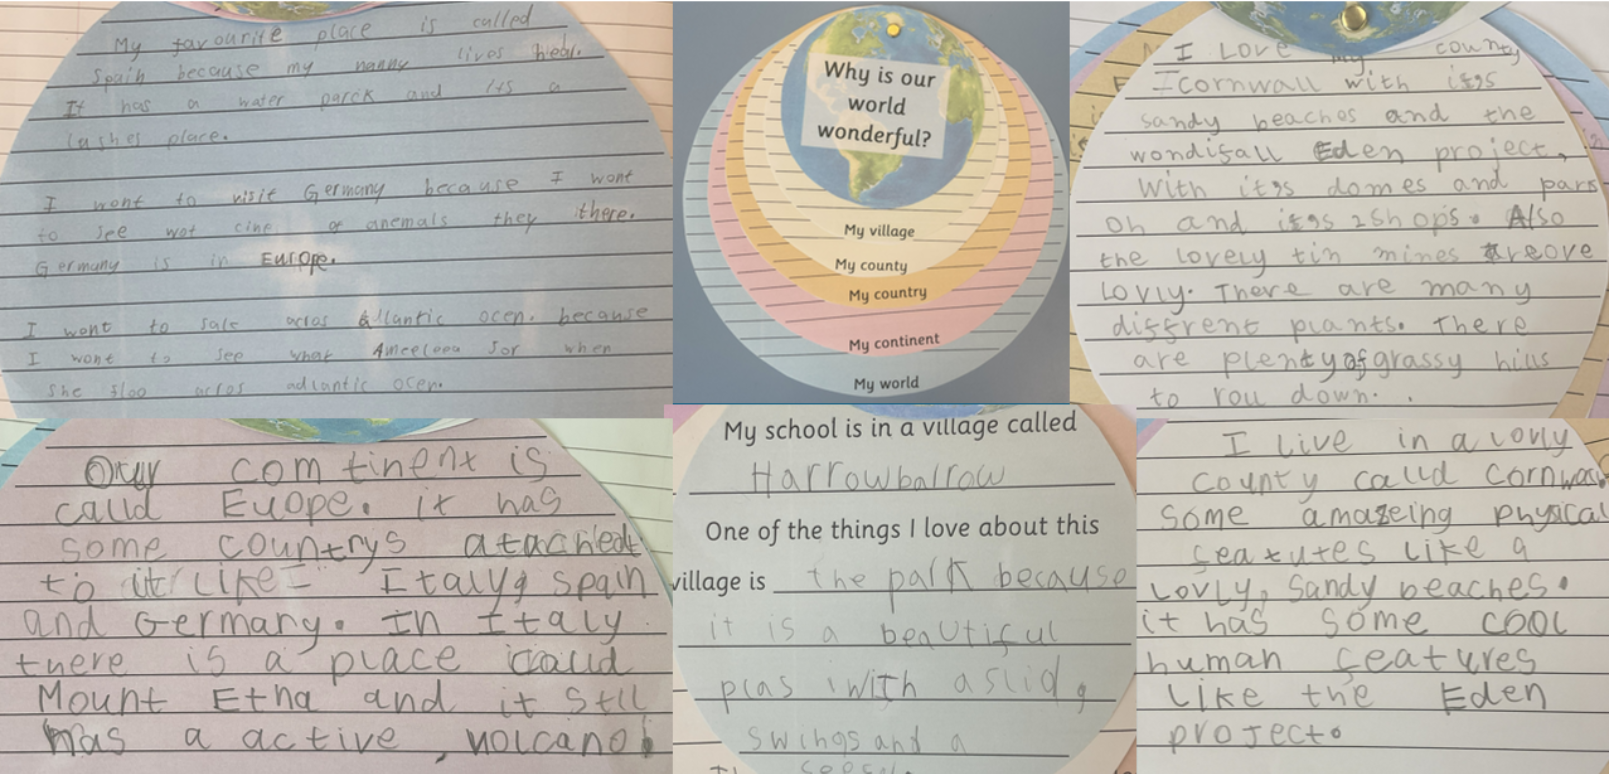 My favourite place is called
Spain because my nanny lives
It has a water parck and its a
lushes place.
I wont to visit Germany because I wont
to see wot cine of anemals they there.
Germany is in Europe.
I wont to sale acros atlantic ocen. because
I wont to see what sor when
She floo acros adlantic ocen.
Why is our
world
wonderful?
My village
My county
My country
My continent
My world
I Love my county
Cornwall with it's
sandy beaches and the
wondifall Eden project,
with it's domes and pars
oh and it's shops. Also
the lovely tin mines
Lovly. There are many
diffrent plants. There
are plenty of grassy hills
to roll down.
Our comtinent is
calld Euope. it has
some countrys atached
to it like Italy, spain
and Germany. In Italy
there is a place calld
Mount Etna and it still
has a active volcano!
My school is in a village called
Harrowbarrow
One of the things I love about this
village is the park because
it is a beautiful
plas with a slid,
swings and a
I Live in a lovly
County calld Cornwall
some amazeing physical
featutes like a
Lovly, sandy beaches.
it has some cool
human features
Like the Eden
project.